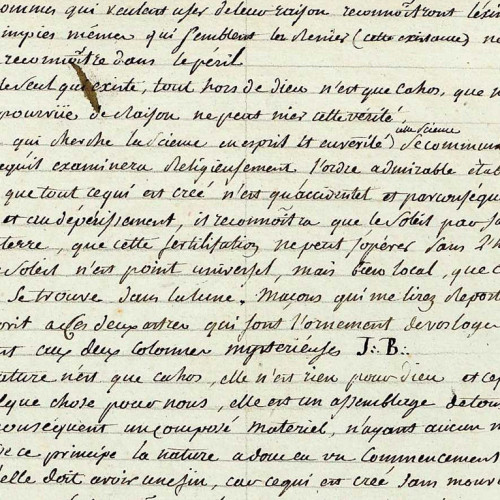 ommes qui veulent user de leur raison reconnoîtront l'éxi
impies même qui semblent la renier (cette existance) n
reconnoître dans le péril
le seul qui existe, tout hors de dieu n'est que cahos, que n
pourvüe de raison ne peut nier cette verité
une Science
qui cherche la Science en esprit et en verité) se
qu'il examinera Religieusement l'ordre admirable étab
que tout ce qui est créé n'est qu'accidentel et par conséqu
et au dépérissement, il reconnoitra que le soleil par sa
terre, que cette fertilisation ne peut s'opérer sans l'h
soleil n'est point universel, mais bien local, que c
se trouve dans la lune. Maçons qui me lirez Report
prit a ces deux astres qui font l'ornement de vos loges
nt aux deux colonnes mysterieuses J∴ B∴
nature n'est que cahos, elle n'est rien pour dieu et ce
lque chose pour nous, elle est un assemblage de tou
conséquent un composé materiel, n'ayant aucun
ce principe la nature a donc eu un commencement
elle doit avoir une fin, car ce qui est créé sans mou